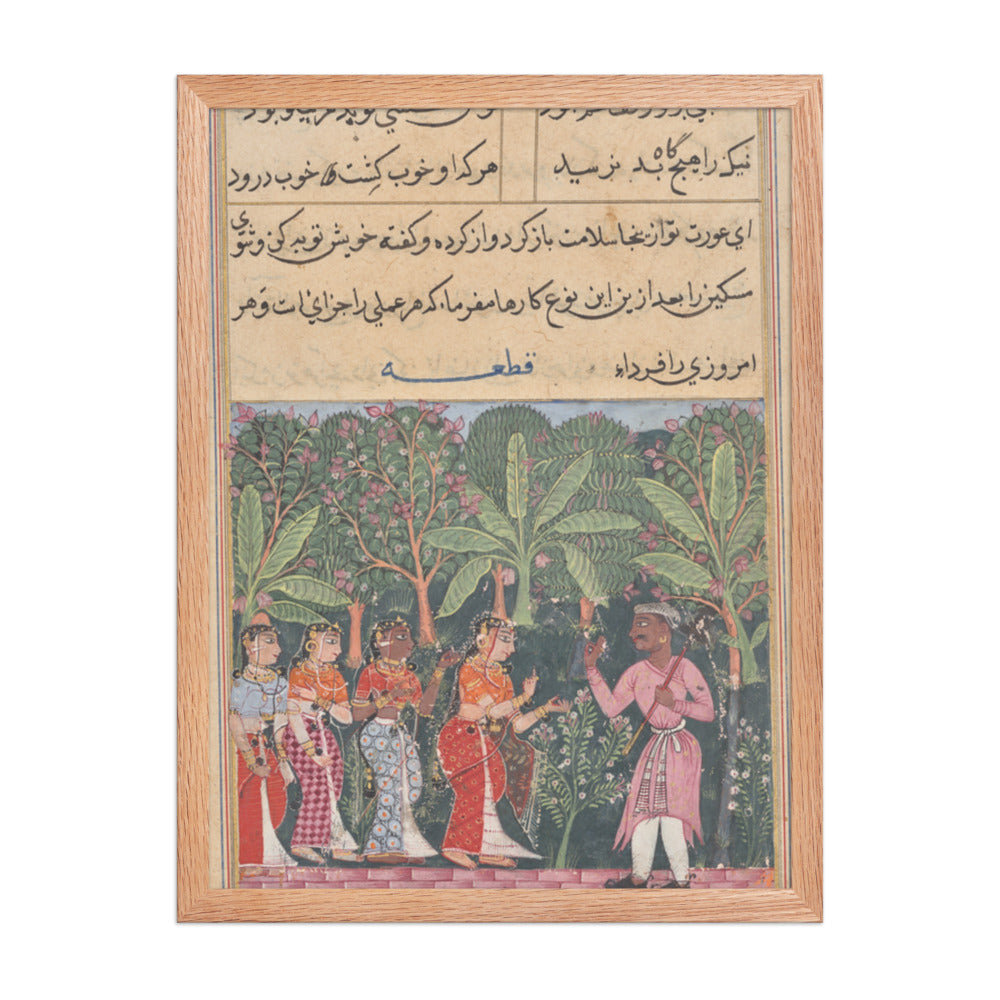 نیک را هیچ گاه بد نرسید هر که او خوب کشت خوب درود
ای عورت تو از ینجا سلامت باز کرد و از کرده و کفته خویش توبه کن و شوی
مسکین را بعد ازین این نوع کارها مفرماء که هر عملی را جزای است و هر
امروزی را فرداء قطعه